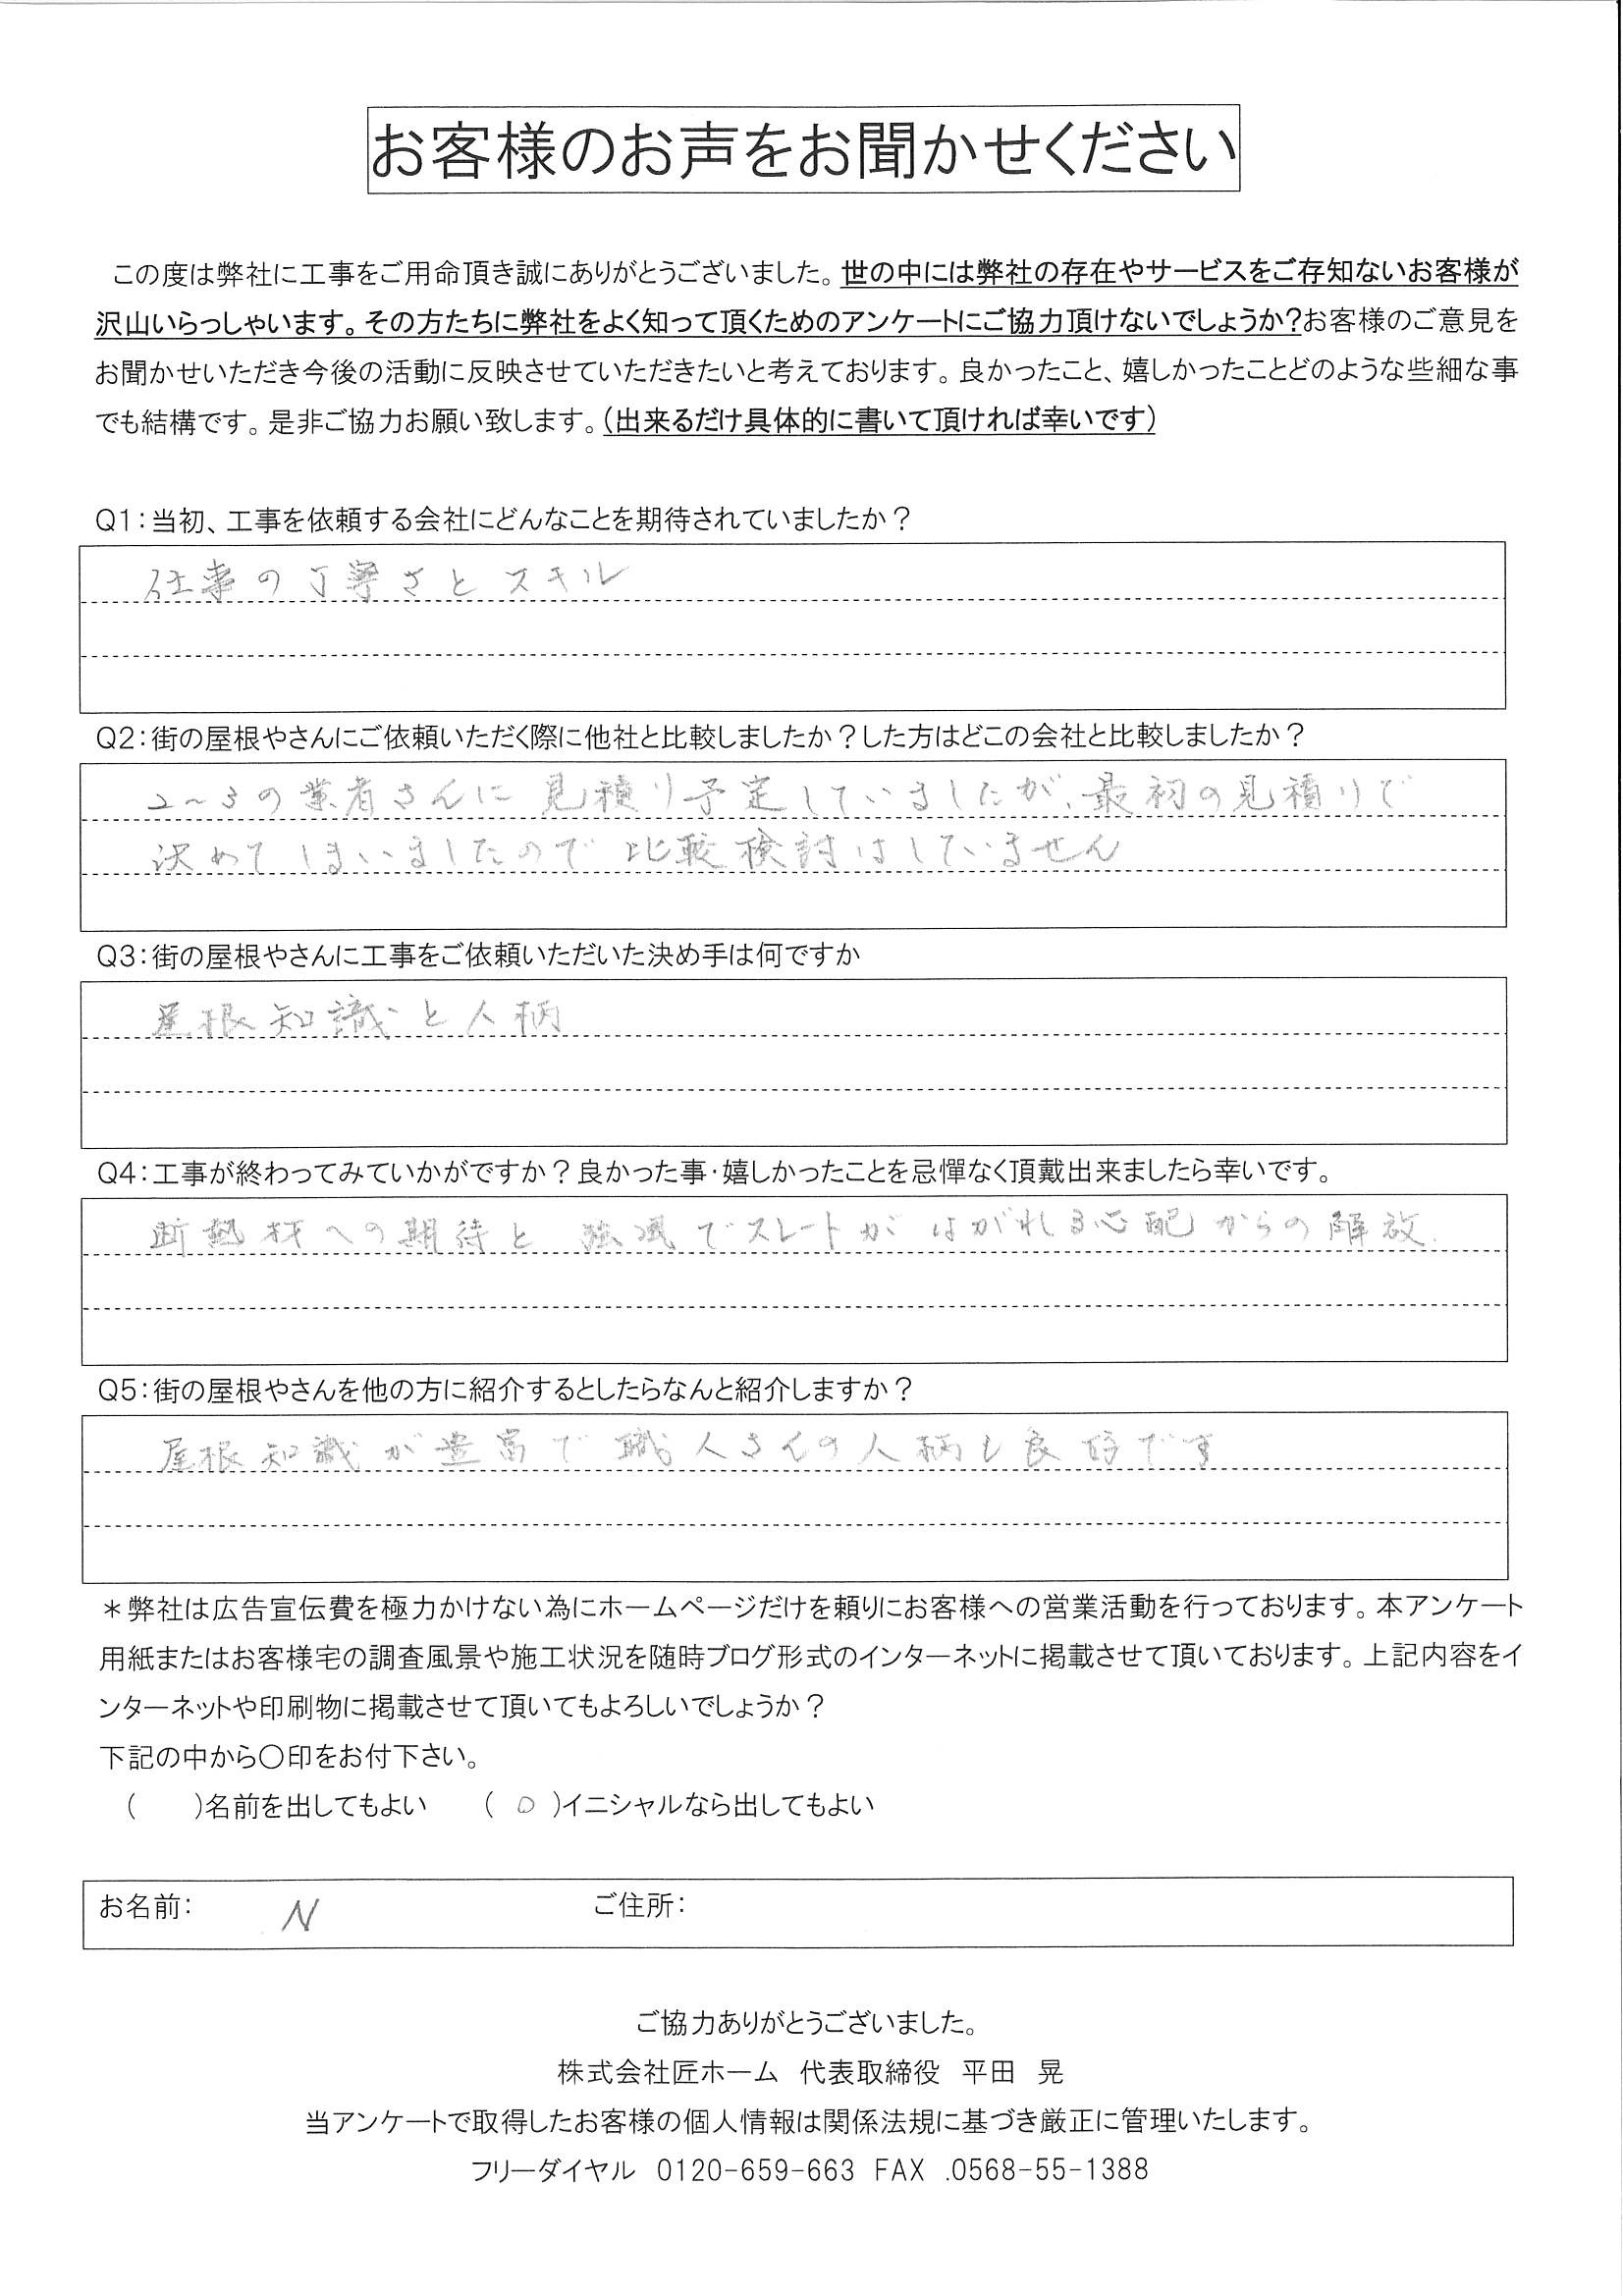 お客様のお声をお聞かせください
この度は弊社に工事をご用命頂き誠にありがとうございました。世の中には弊社の存在やサービスをご存知ないお客様が
沢山いらっしゃいます。その方たちに弊社をよく知って頂くためのアンケートにご協力頂けないでしょうか?お客様のご意見を
お聞かせいただき今後の活動に反映させていただきたいと考えております。良かったこと、嬉しかったことどのような些細な事
でも結構です。是非ご協力お願い致します。(出来るだけ具体的に書いて頂ければ幸いです)
Q1:当初、工事を依頼する会社にどんなことを期待されていましたか?
仕事の丁寧さとスキル
Q2:街の屋根やさんにご依頼いただく際に他社と比較しましたか?した方はどこの会社と比較しましたか?
2~3の業者さんに見積り予定していましたが、最初の見積りで
決めてしまいましたので比較検討はしていません
Q3:街の屋根やさんに工事をご依頼いただいた決め手は何ですか
屋根知識と人柄
Q4:工事が終わってみていかがですか?良かった事・嬉しかったことを忌憚なく頂戴出来ましたら幸いです。
断熱材への期待と強風でスレートがはがれる心配からの解放.
Q5:街の屋根やさんを他の方に紹介するとしたらなんと紹介しますか?
屋根知識が豊富で職人さんの人柄も良好です
*弊社は広告宣伝費を極力かけない為にホームページだけを頼りにお客様への営業活動を行っております。本アンケート
用紙またはお客様宅の調査風景や施工状況を随時ブログ形式のインターネットに掲載させて頂いております。上記内容をイ
ンターネットや印刷物に掲載させて頂いてもよろしいでしょうか?
下記の中から〇印をお付下さい。
(　　)名前を出してもよい　　( 〇 )イニシャルなら出してもよい
お名前: N　　ご住所:
ご協力ありがとうございました。
株式会社匠ホーム　代表取締役　平田　晃
当アンケートで取得したお客様の個人情報は関係法規に基づき厳正に管理いたします。
フリーダイヤル　0120-659-663 FAX .0568-55-1388